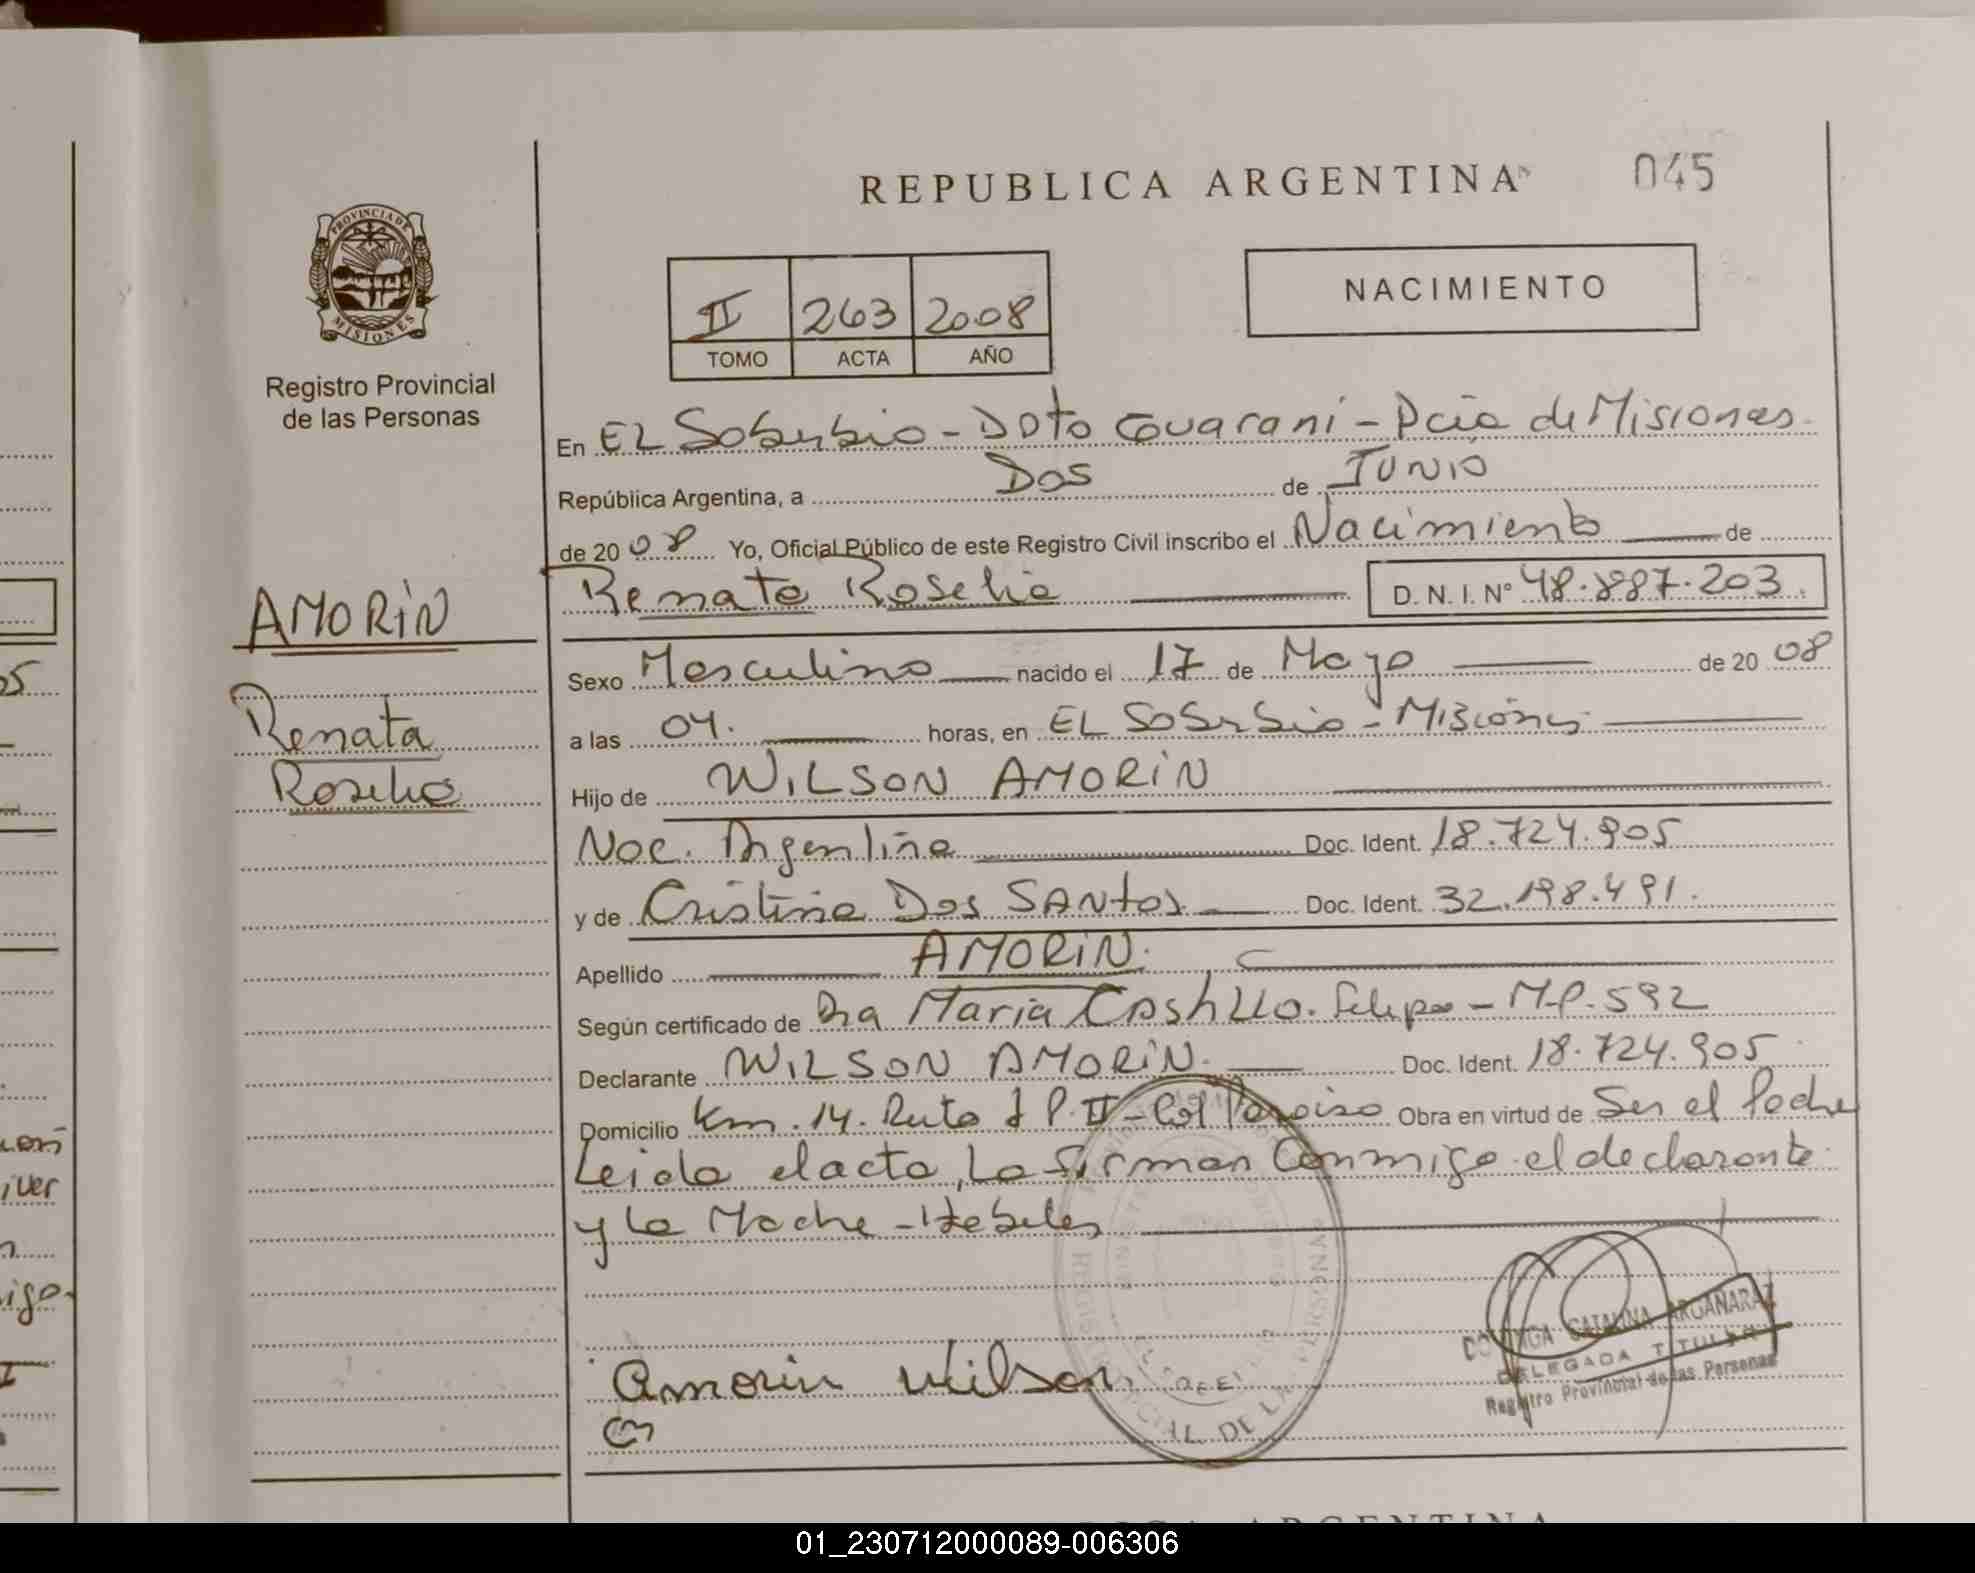 REPUBLICA ARGENTINA
045
PROVINCIA DE
MISIONES
Registro Provincial
de las Personas
II 263 2008
TOMO ACTA AÑO
NACIMIENTO
En EL Soberbio - Dpto Guaraní - Pcia de Misiones.
República Argentina, a Dos de JUNIO
de 20 08 Yo, Oficial Público de este Registro Civil inscribo el Nacimiento de
Renata Roselia D. N. I. Nº 48.887.203.
AMORIN
Renata
Roselia
Sexo Masculino nacido el 17 de Mayo de 20 08
a las 04. horas, en EL Soberbio - Misiones
Hijo de WILSON AMORIN
Nac. Argentina Doc. Ident. 18.724.905
y de Cristina Dos SANtos Doc. Ident. 32.198.491.
Apellido AMORIN.
Según certificado de Dra Maria Castillo. Felipa - M.P. 592
Declarante WILSON AMORIN. Doc. Ident. 18.724.905
Domicilio Km. 14. Ruta P. II - Col Paraiso Obra en virtud de Ser el Padre
Leida el acta, La firman Conmigo el declarante
y La Madre
Amorin Wilson
DOMINGA CATALINA ARGAÑARAZ
DELEGADA TITULAR
Registro Provincial de las Personas
01_230712000089-006306